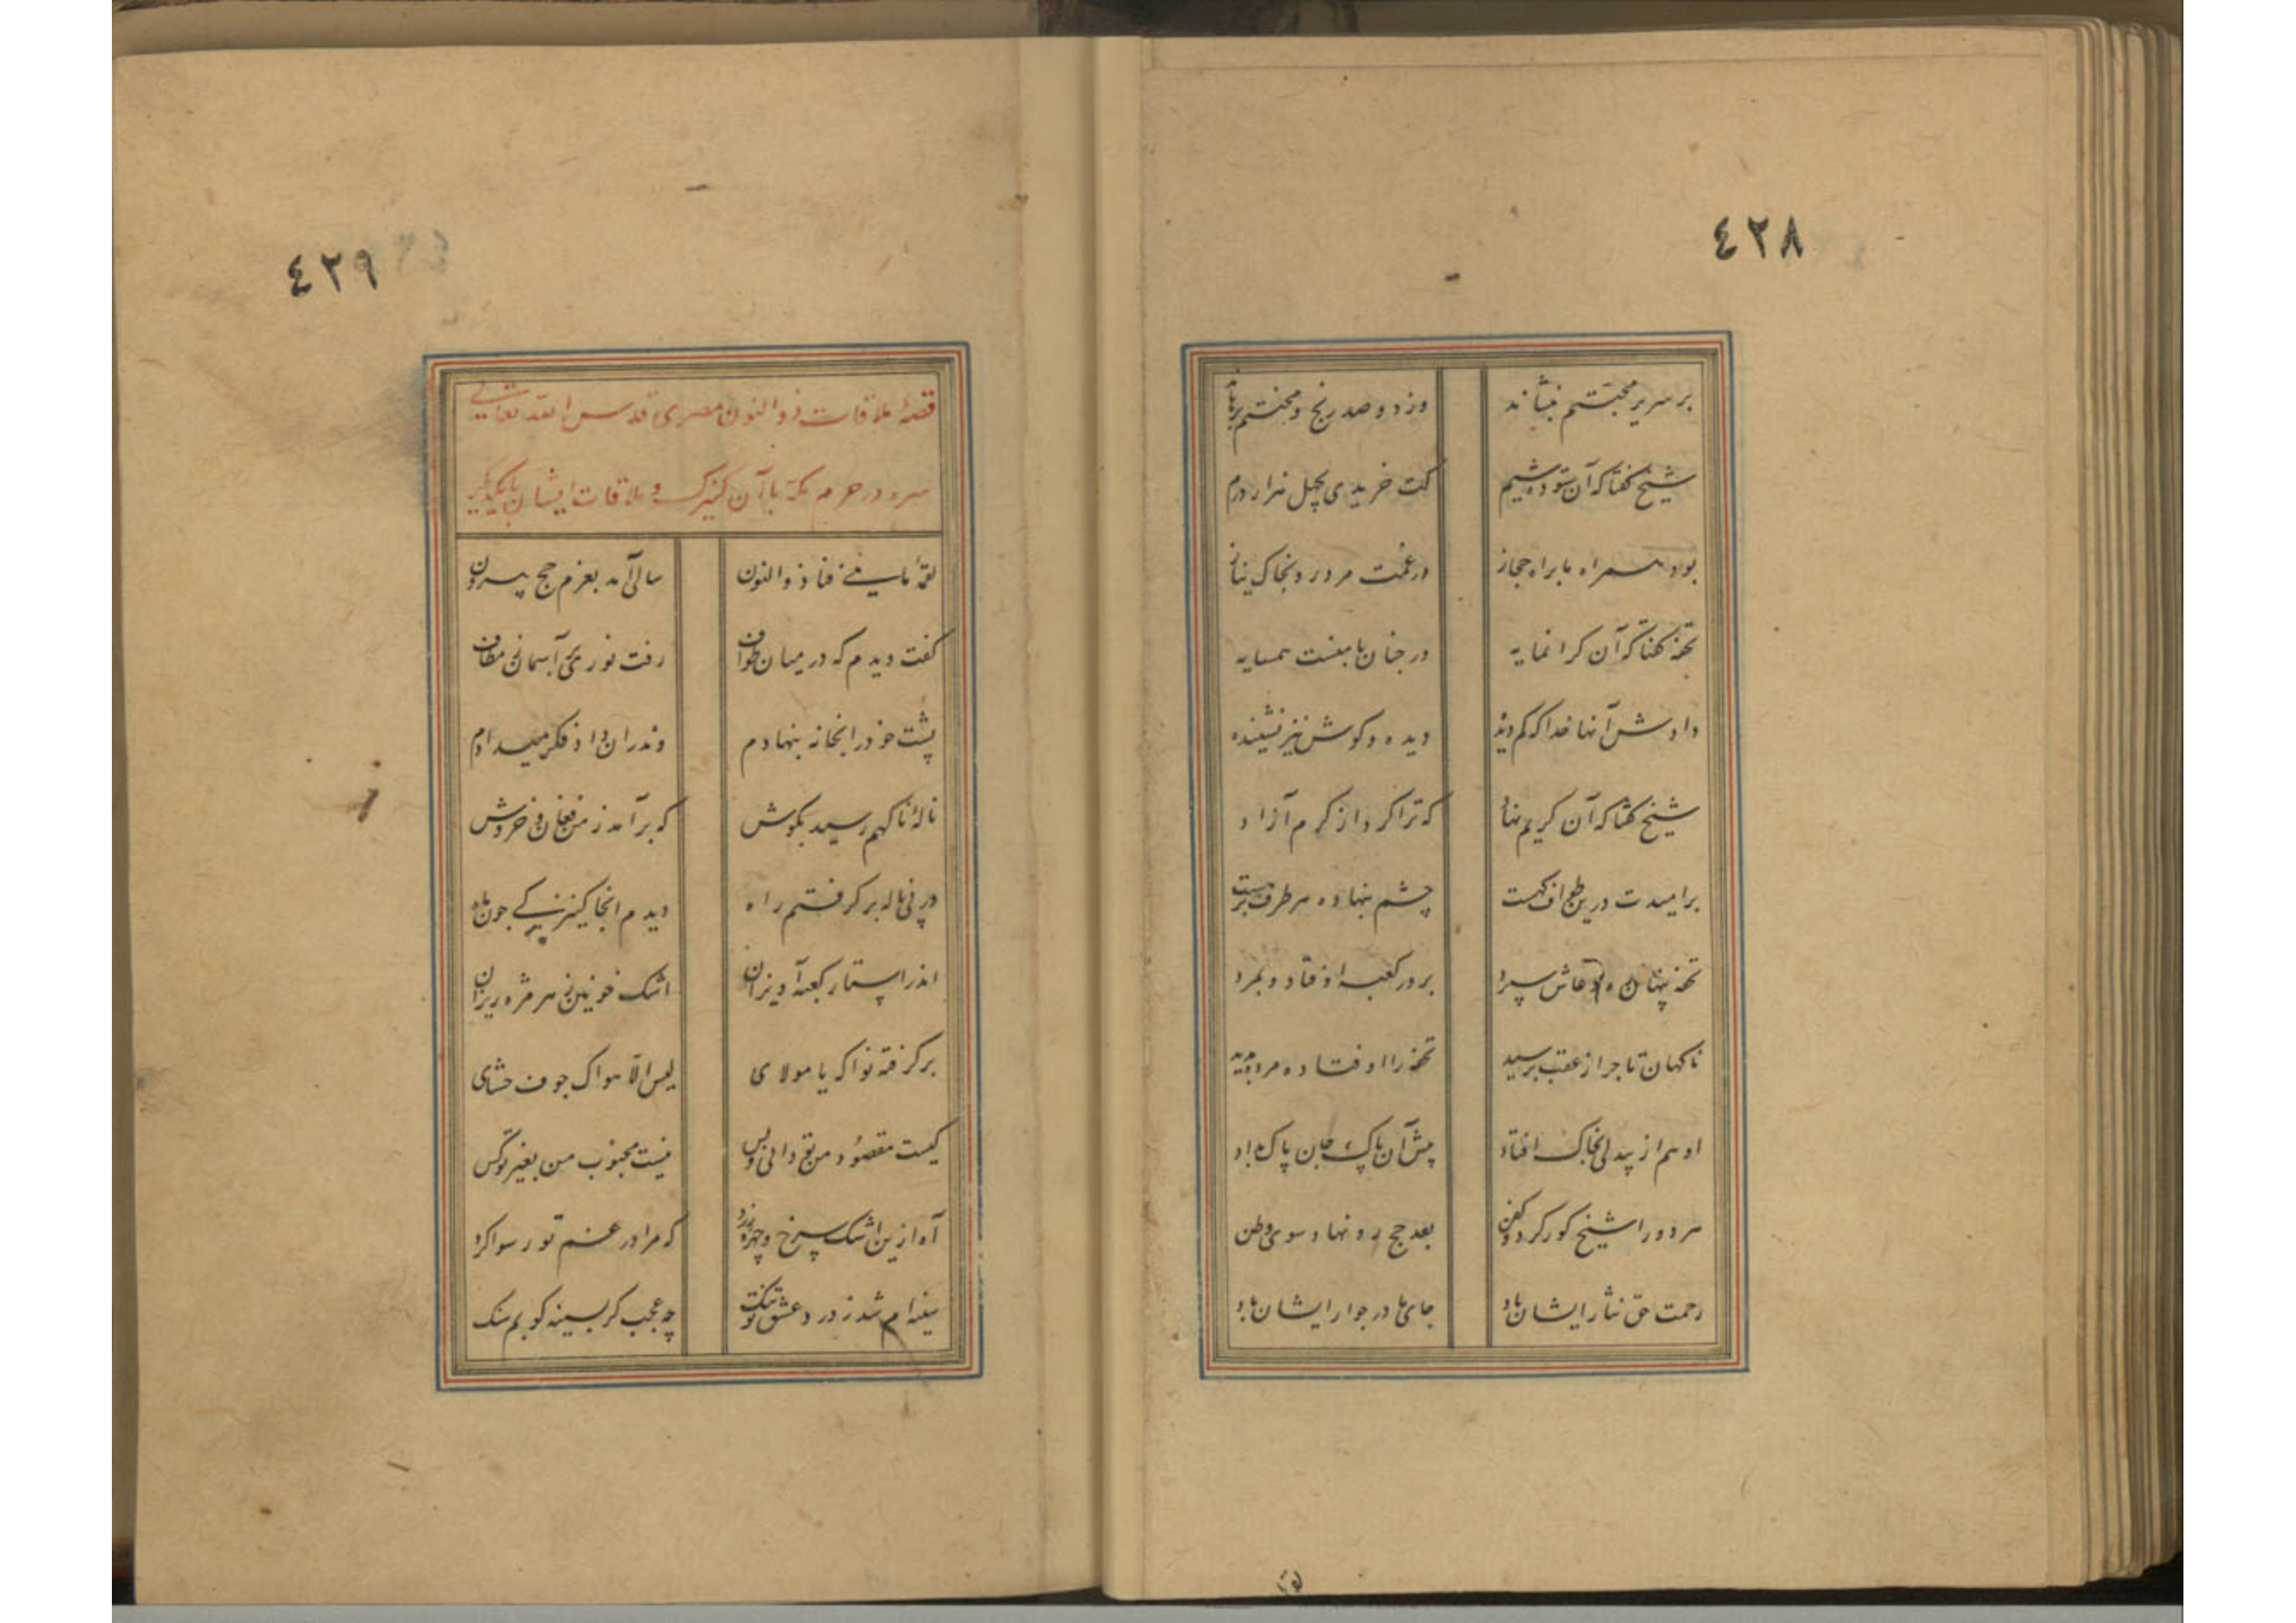 ٤٢٨
بر سریر محبتم بنشاند وز دو صد رنج و محنتم برهاند
شیخ گفتا که آن ستوده شیم کت خریدی بچل هزار درم
بود همراه ما براه حجاز در غمت مرد رو بخاک نیاز
تحفه گفتا که آن کرانمایه در جنان با منست همسایه
دادش آنها خدا که کم دیده دیده و کوش نیز نشنیده
شیخ گفتا که آن کریم نهاد که ترا کرد از کرم آزاد
بر امیدت درین طواف کهست چشم بنهاده هر طرف بر تست
تحفه پنهان دعاش سپرد بر در کعبه اوفتاد و بمرد
ناکهان تاجر از عقب برسید تحفه را اوفتاده مرده بدید
او هم از بیدلی بخاک افتاد پیش آن پاک جان پاک بداد
هر دو را شیخ کور کرد و کفن بعد حج رو نهاد سوی وطن
رحمت حق نثار ایشان باد جای ما در جوار ایشان باد
٤٢٩
قصهٔ ملاقات ذوالنون مصری قدس الله تعالی
سره در حرم مکه با آن کنیزک و ملاقات ایشان با یکدیگر
لقمهٔ ماهی فنا ذوالنون سالی آمد بعزم حج بیرون
گفت دیدم که در میان طواف رفت نوری بر آسمان ز مطاف
پشت خود را بخانه بنهادم وندران داد فکر میدادم
نالهٔ ناکهم رسید بکوش که برآمد ز من فغان و خروش
در پی ناله بر کرفتم راه دیدم آنجا کنیزکی چون ماه
اندر استار کعبه آویزان اشک خونین ز هر مژه ریزان
بر کرفته نوا که یا مولای لیس الا هواک جوف حشای
کیست مقصود من تو دانی و بس نیست محبوب من بغیر تو کس
آه ازین اشک سرخ و چهره زرد که مرا در غم تو رسوا کرد
سینه ام شد ز درد عشق تو تنگ چه عجب کر بسینه کوبم سنک